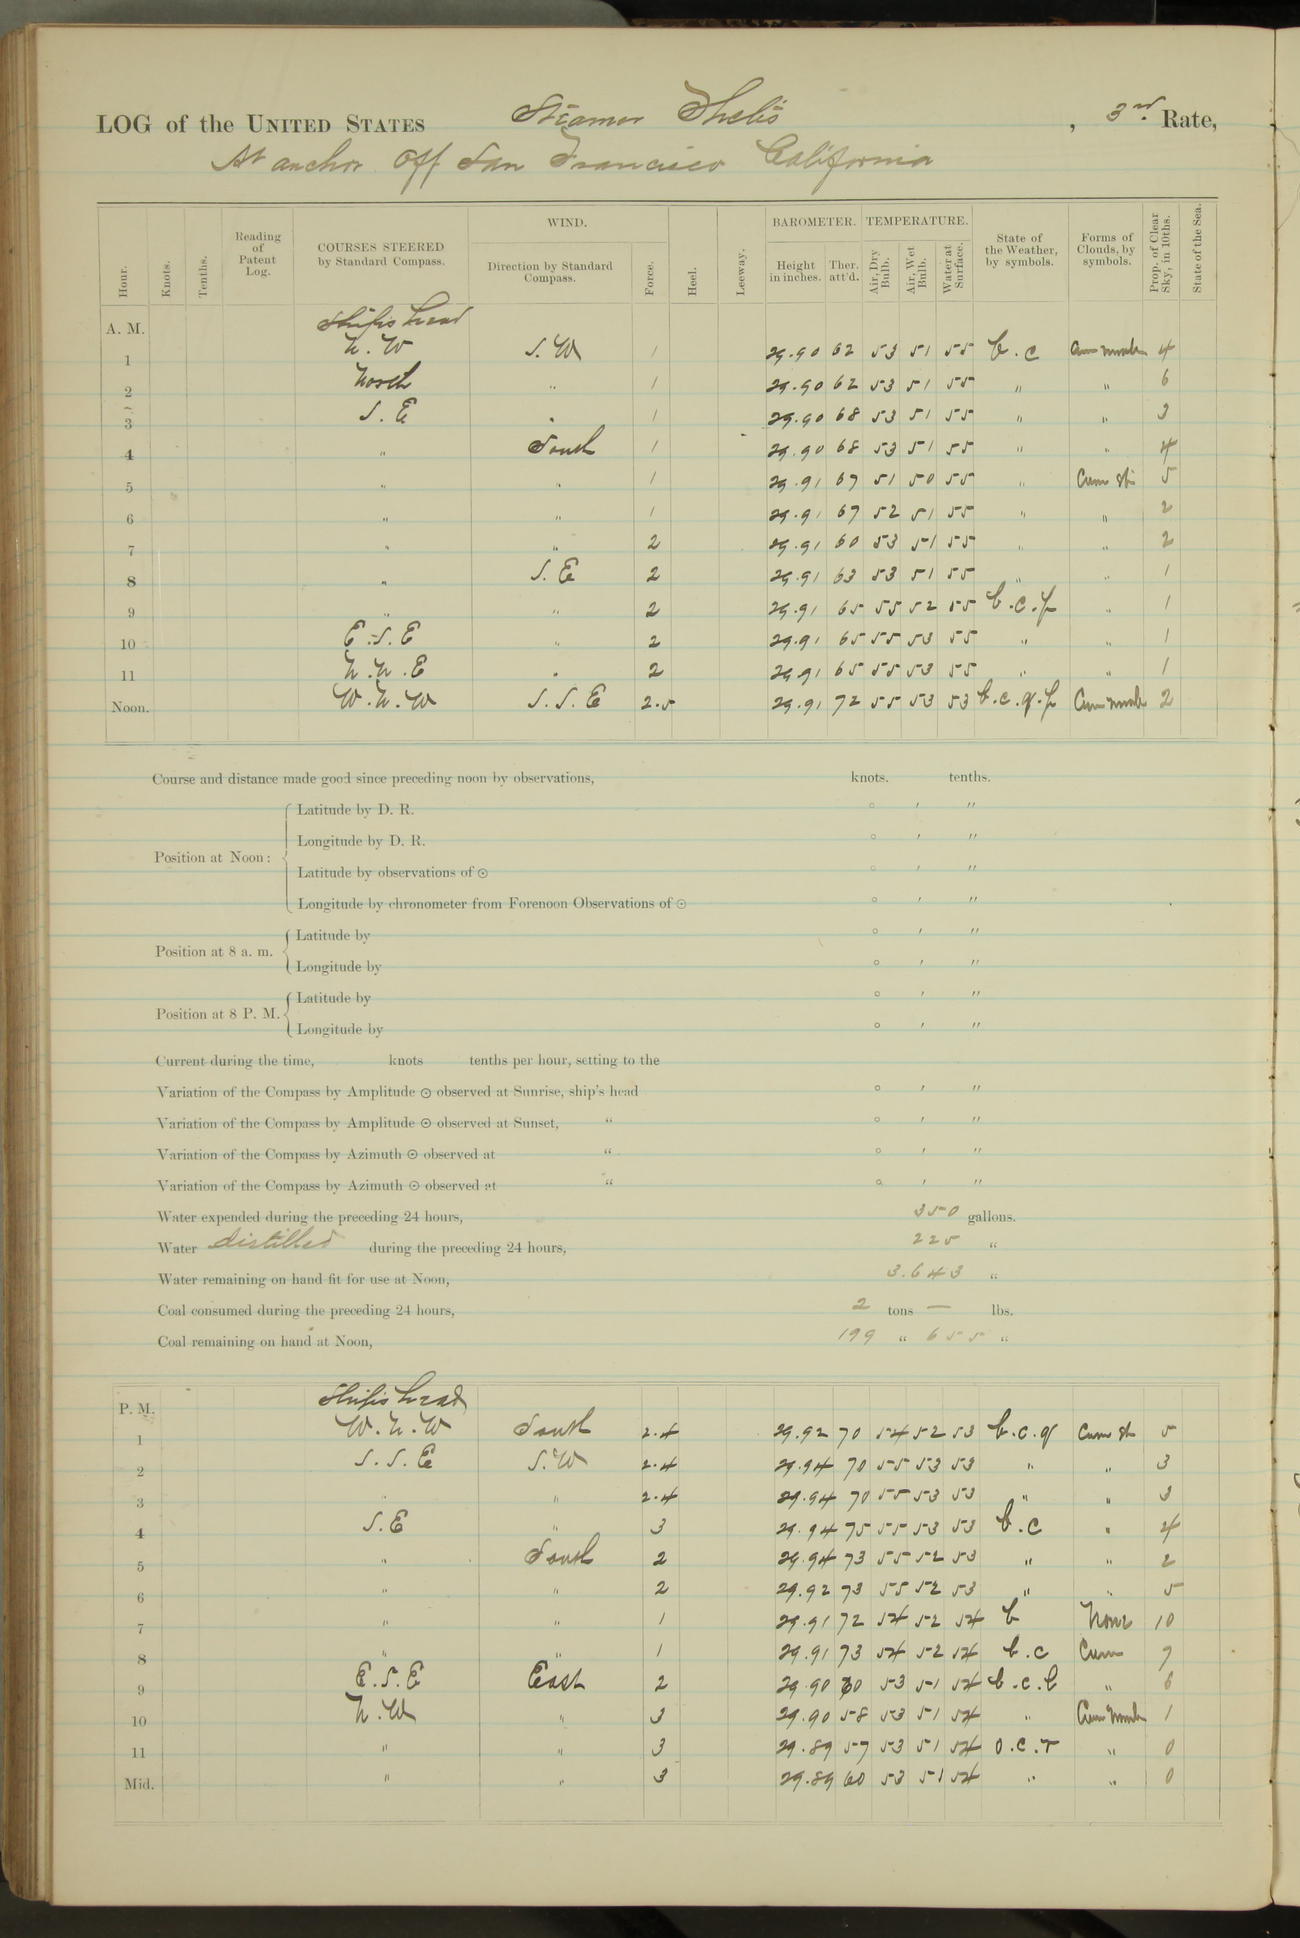 LOG of the UNITED STATES Steamer Thetis , 3rd Rate,
At anchor off San Francisco California
Hour. Knots. Tenths. Reading of Patent Log. COURSES STEERED by Standard Compass. WIND. Direction by Standard Compass. Force. Heel. Leeway. BAROMETER. Height in inches. Ther. att'd. TEMPERATURE. Air, Dry Bulb. Air, Wet Bulb. Water at Surface. State of the Weather, by symbols. Forms of Clouds, by symbols. Prop. of Clear Sky, in 10ths. State of the Sea.
A. M. Ship's head
1 N. W S. W 1 29.90 62 53 51 55 b. c Cum nimb 4
2 North " 1 29.90 62 53 51 55 " " 6
3 S. E " 1 29.90 68 53 51 55 " " 3
4 " South 1 29.90 68 53 51 55 " " 4
5 " " 1 29.91 67 51 50 55 " Cum str 5
6 " " 1 29.91 67 52 51 55 " " 2
7 " " 2 29.91 60 53 51 55 " " 2
8 " S. E 2 29.91 63 53 51 55 " " 1
9 " " 2 29.91 65 55 52 55 b. c. p " 1
10 E. S. E " 2 29.91 65 55 53 55 " " 1
11 N. N. E " 2 29.91 65 55 53 55 " " 1
Noon. W. N. W S. S. E 2.5 29.91 72 55 53 53 b. c. q. p Cum nimb 2
Course and distance made good since preceding noon by observations, knots. tenths.
Position at Noon:
Latitude by D. R. ° ' "
Longitude by D. R. ° ' "
Latitude by observations of ☉ ° ' "
Longitude by chronometer from Forenoon Observations of ☉ ° ' "
Position at 8 a. m.
Latitude by ° ' "
Longitude by ° ' "
Position at 8 P. M.
Latitude by ° ' "
Longitude by ° ' "
Current during the time, knots tenths per hour, setting to the
Variation of the Compass by Amplitude ☉ observed at Sunrise, ship's head ° ' "
Variation of the Compass by Amplitude ☉ observed at Sunset, " ° ' "
Variation of the Compass by Azimuth ☉ observed at " ° ' "
Variation of the Compass by Azimuth ☉ observed at " ° ' "
Water expended during the preceding 24 hours, 350 gallons.
Water distilled during the preceding 24 hours, 225 "
Water remaining on hand fit for use at Noon, 3.643 "
Coal consumed during the preceding 24 hours, 2 tons — lbs.
Coal remaining on hand at Noon, 199 " 655 "
P. M. Ship's head
1 W. N. W South 2.4 29.92 70 54 52 53 b. c. q Cum str 5
2 S. S. E S. W 2.4 29.94 70 55 53 53 " " 3
3 " " 2.4 29.94 70 55 53 53 " " 3
4 S. E " 3 29.94 75 55 53 53 b. c " 4
5 " South 2 29.94 73 55 52 53 " " 2
6 " " 2 29.92 73 55 52 53 " " 5
7 " " 1 29.91 72 54 52 54 b None 10
8 " " 1 29.91 73 54 52 54 b. c Cum 7
9 E. S. E East 2 29.90 60 53 51 54 b. c. l " 6
10 N. W " 3 29.90 58 53 51 54 " Cum Nimb 1
11 " " 3 29.89 57 53 51 54 o. c. r " 0
Mid. " " 3 29.89 60 53 51 54 " " 0